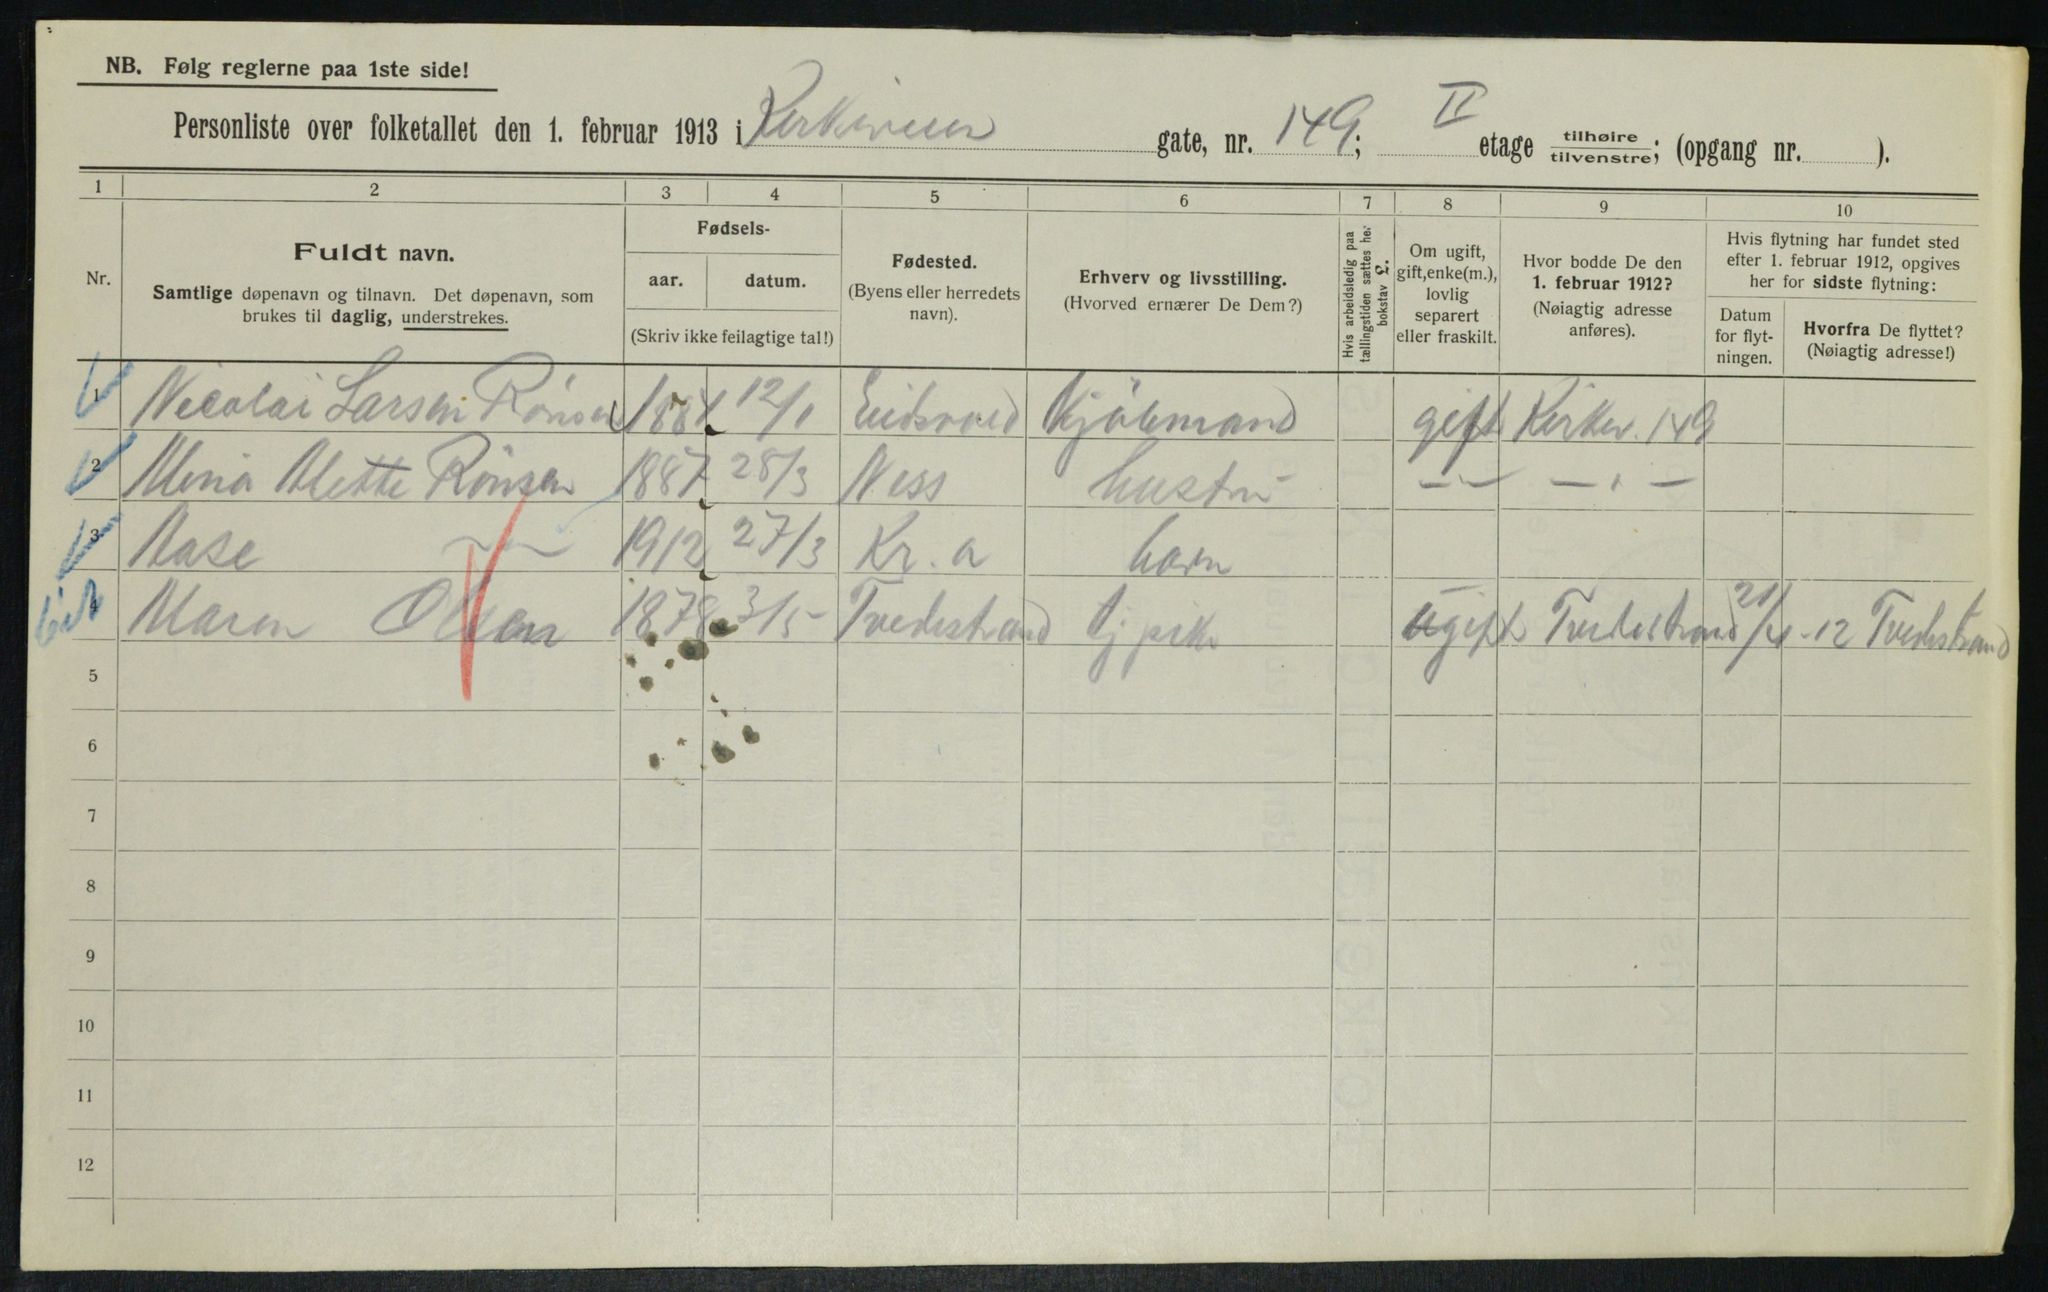 NB. Følg reglerne paa 1ste side!
Personliste over folketallet den 1. februar 1913 i Kirkeveien gate, nr. 149; II etage tilhøire/tilvenstre; (opgang nr. ).
1 2 3 4 5 6 7 8 9 10
Nr.
Fuldt navn.
Samtlige døpenavn og tilnavn. Det døpenavn, som
brukes til daglig, understrekes.
Fødsels-
aar. datum.
(Skriv ikke feilagtige tal!)
Fødested.
(Byens eller herredets
navn).
Erhverv og livsstilling.
(Hvorved ernærer De Dem?)
Hvis arbeidsledig paa
tællingstiden sættes her
bokstav £.
Om ugift,
gift, enke(m.),
lovlig
separert
eller fraskilt.
Hvor bodde De den
1. februar 1912?
(Nøiagtig adresse
anføres).
Hvis flytning har fundet sted
efter 1. februar 1912, opgives
her for sidste flytning:
Datum
for flyt-
ningen.
Hvorfra De flyttet?
(Nøiagtig adresse!)
1 Nicolai Larsen Rönsen 1884 12/1 Eidsvold Kjöbmand gift Kirkev. 149
2 Mina Mette Rönsen 1887 28/3 Ness hustru — — — . —
3 Aase — — 1912 27/3 Kr. a barn
4 Maren Olsen 1878 3/5 Tvedestrand tj pike ugift Tvedestrand 21/4-12 Tvedestrand
5
6
7
8
9
10
11
12